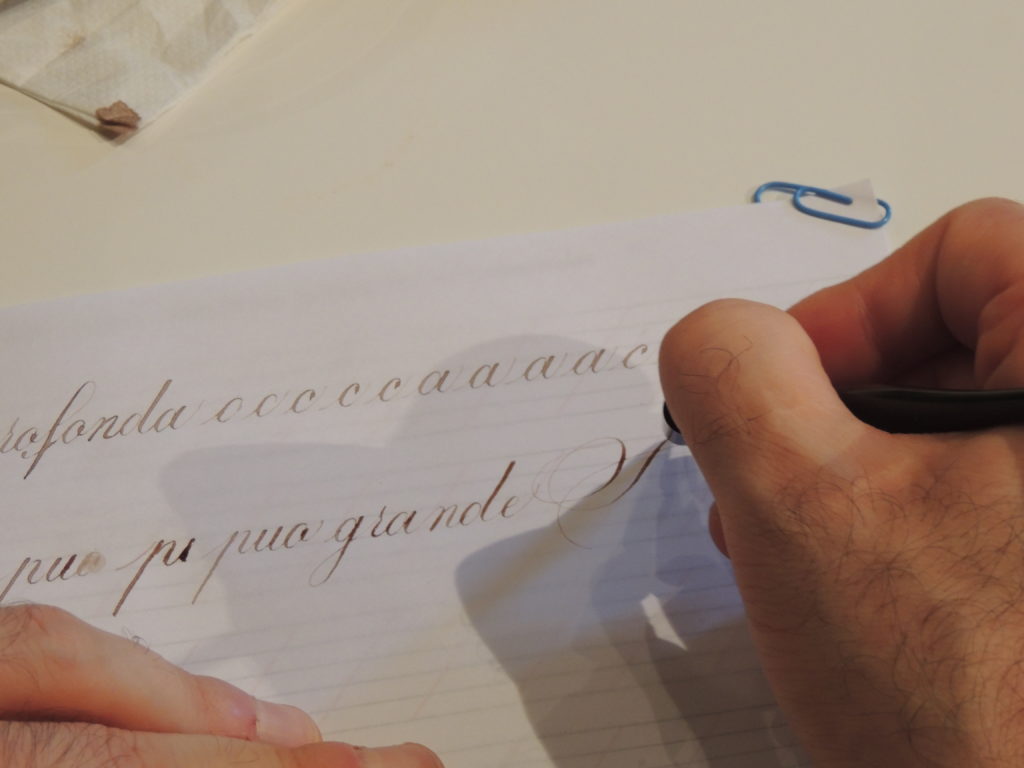 rofonda o o c c c a a a a c
puo pi puo grande